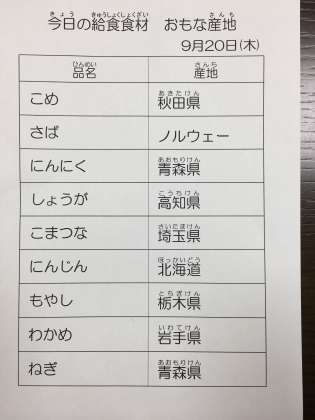 今日の給食食材　おもな産地
9月20日(木)
品名　産地
こめ　秋田県
さば　ノルウェー
にんにく　青森県
しょうが　高知県
こまつな　埼玉県
にんじん　北海道
もやし　栃木県
わかめ　岩手県
ねぎ　青森県